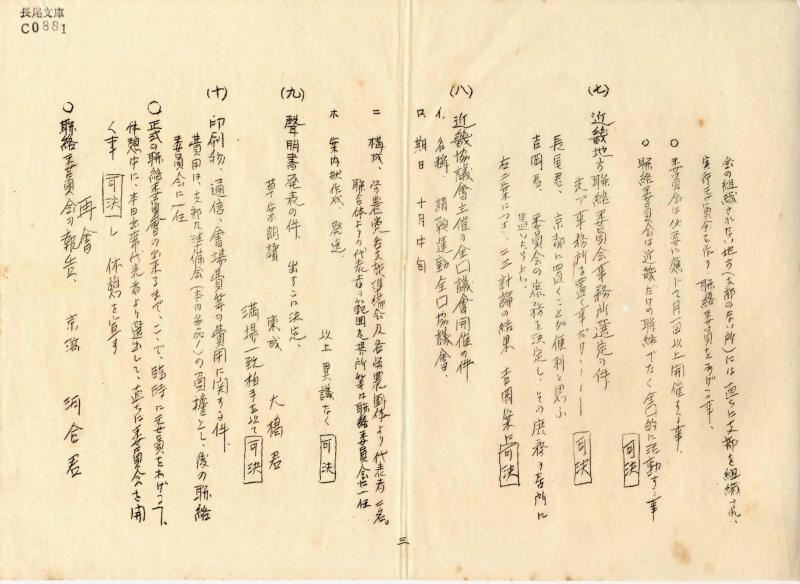 長尾文庫
C0881
会の組織されない地方(支部のない所)には直ちに支部を組織され、
実行委員会を作り聯絡委員をあげる事、
○ 委員会は必要に應じて月一回以上開催する事、
○ 聯絡委員会は近畿だけの聯絡でなく全口的に活動する事
可決
(七) 近畿地方聯絡委員会事務所選定の件
先づ事務所を置く事だけ‥‥‥ 可決
長尾君、京都に置くことが便利と思ふ
吉岡君、委員会の庶務を決定し、その庶務の居所に
置いたらよし、
左二案につき、二三討論の結果 吉岡案に 可決
(八) 近畿協議會主催の全口議會開催の件
イ、名称 請願運動全口協議會、
ロ、期日 十月中旬
ニ 構成、学農党各支部準備会及各学農團体より代表者二名。
聯合体よりの代表者の範囲及其所等は聯絡委員会に一任
ホ 案内状作成、發送、
以上 異議なく 可決
(九) 聲明書発表の件、出すことに決定、
草案朗讀 東成 大橋君
満場一致拍手を以て 可決
(十) 印刷物、通信、會場費等の費用に関する件、
費用は、支部及準備会(本日参加)の負擔とし、後の聯絡
委員会に一任
○ 正式の聯絡委員會の出来るまで、こゝで、臨時に委員をあげて、
休憩中に、本日出席代表者より選出して、直ちに委員会を開
く事 可決し 休憩を宣す
再會
○ 聯絡委員会の報告、京滋 河合君
三